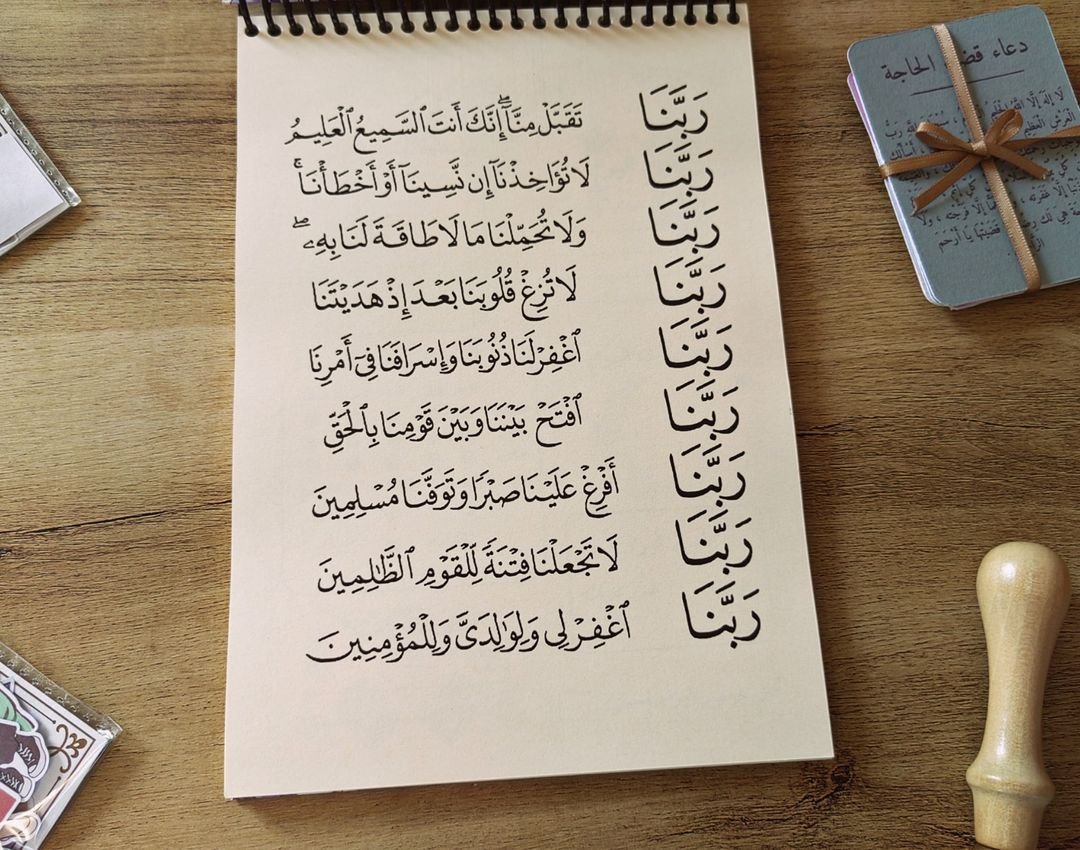 رَبَّنَا تَقَبَّلْ مِنَّآ ۖ إِنَّكَ أَنتَ ٱلسَّمِيعُ ٱلْعَلِيمُ
رَبَّنَا لَا تُؤَاخِذْنَآ إِن نَّسِينَآ أَوْ أَخْطَأْنَا ۚ
رَبَّنَا وَلَا تُحَمِّلْنَا مَا لَا طَاقَةَ لَنَا بِهِۦ ۖ
رَبَّنَا لَا تُزِغْ قُلُوبَنَا بَعْدَ إِذْ هَدَيْتَنَا
رَبَّنَا ٱغْفِرْ لَنَا ذُنُوبَنَا وَإِسْرَافَنَا فِىٓ أَمْرِنَا
رَبَّنَا ٱفْتَحْ بَيْنَنَا وَبَيْنَ قَوْمِنَا بِٱلْحَقِّ
رَبَّنَا أَفْرِغْ عَلَيْنَا صَبْرًا وَتَوَفَّنَا مُسْلِمِينَ
رَبَّنَا لَا تَجْعَلْنَا فِتْنَةً لِّلْقَوْمِ ٱلظَّٰلِمِينَ
رَبَّنَا ٱغْفِرْ لِى وَلِوَٰلِدَىَّ وَلِلْمُؤْمِنِينَ
دعاء الحاجة
لَا إِلَهَ إِلَّا اللهُ
الْعَرْشِ الْعَظِيمِ
يَا أَرْحَمَ